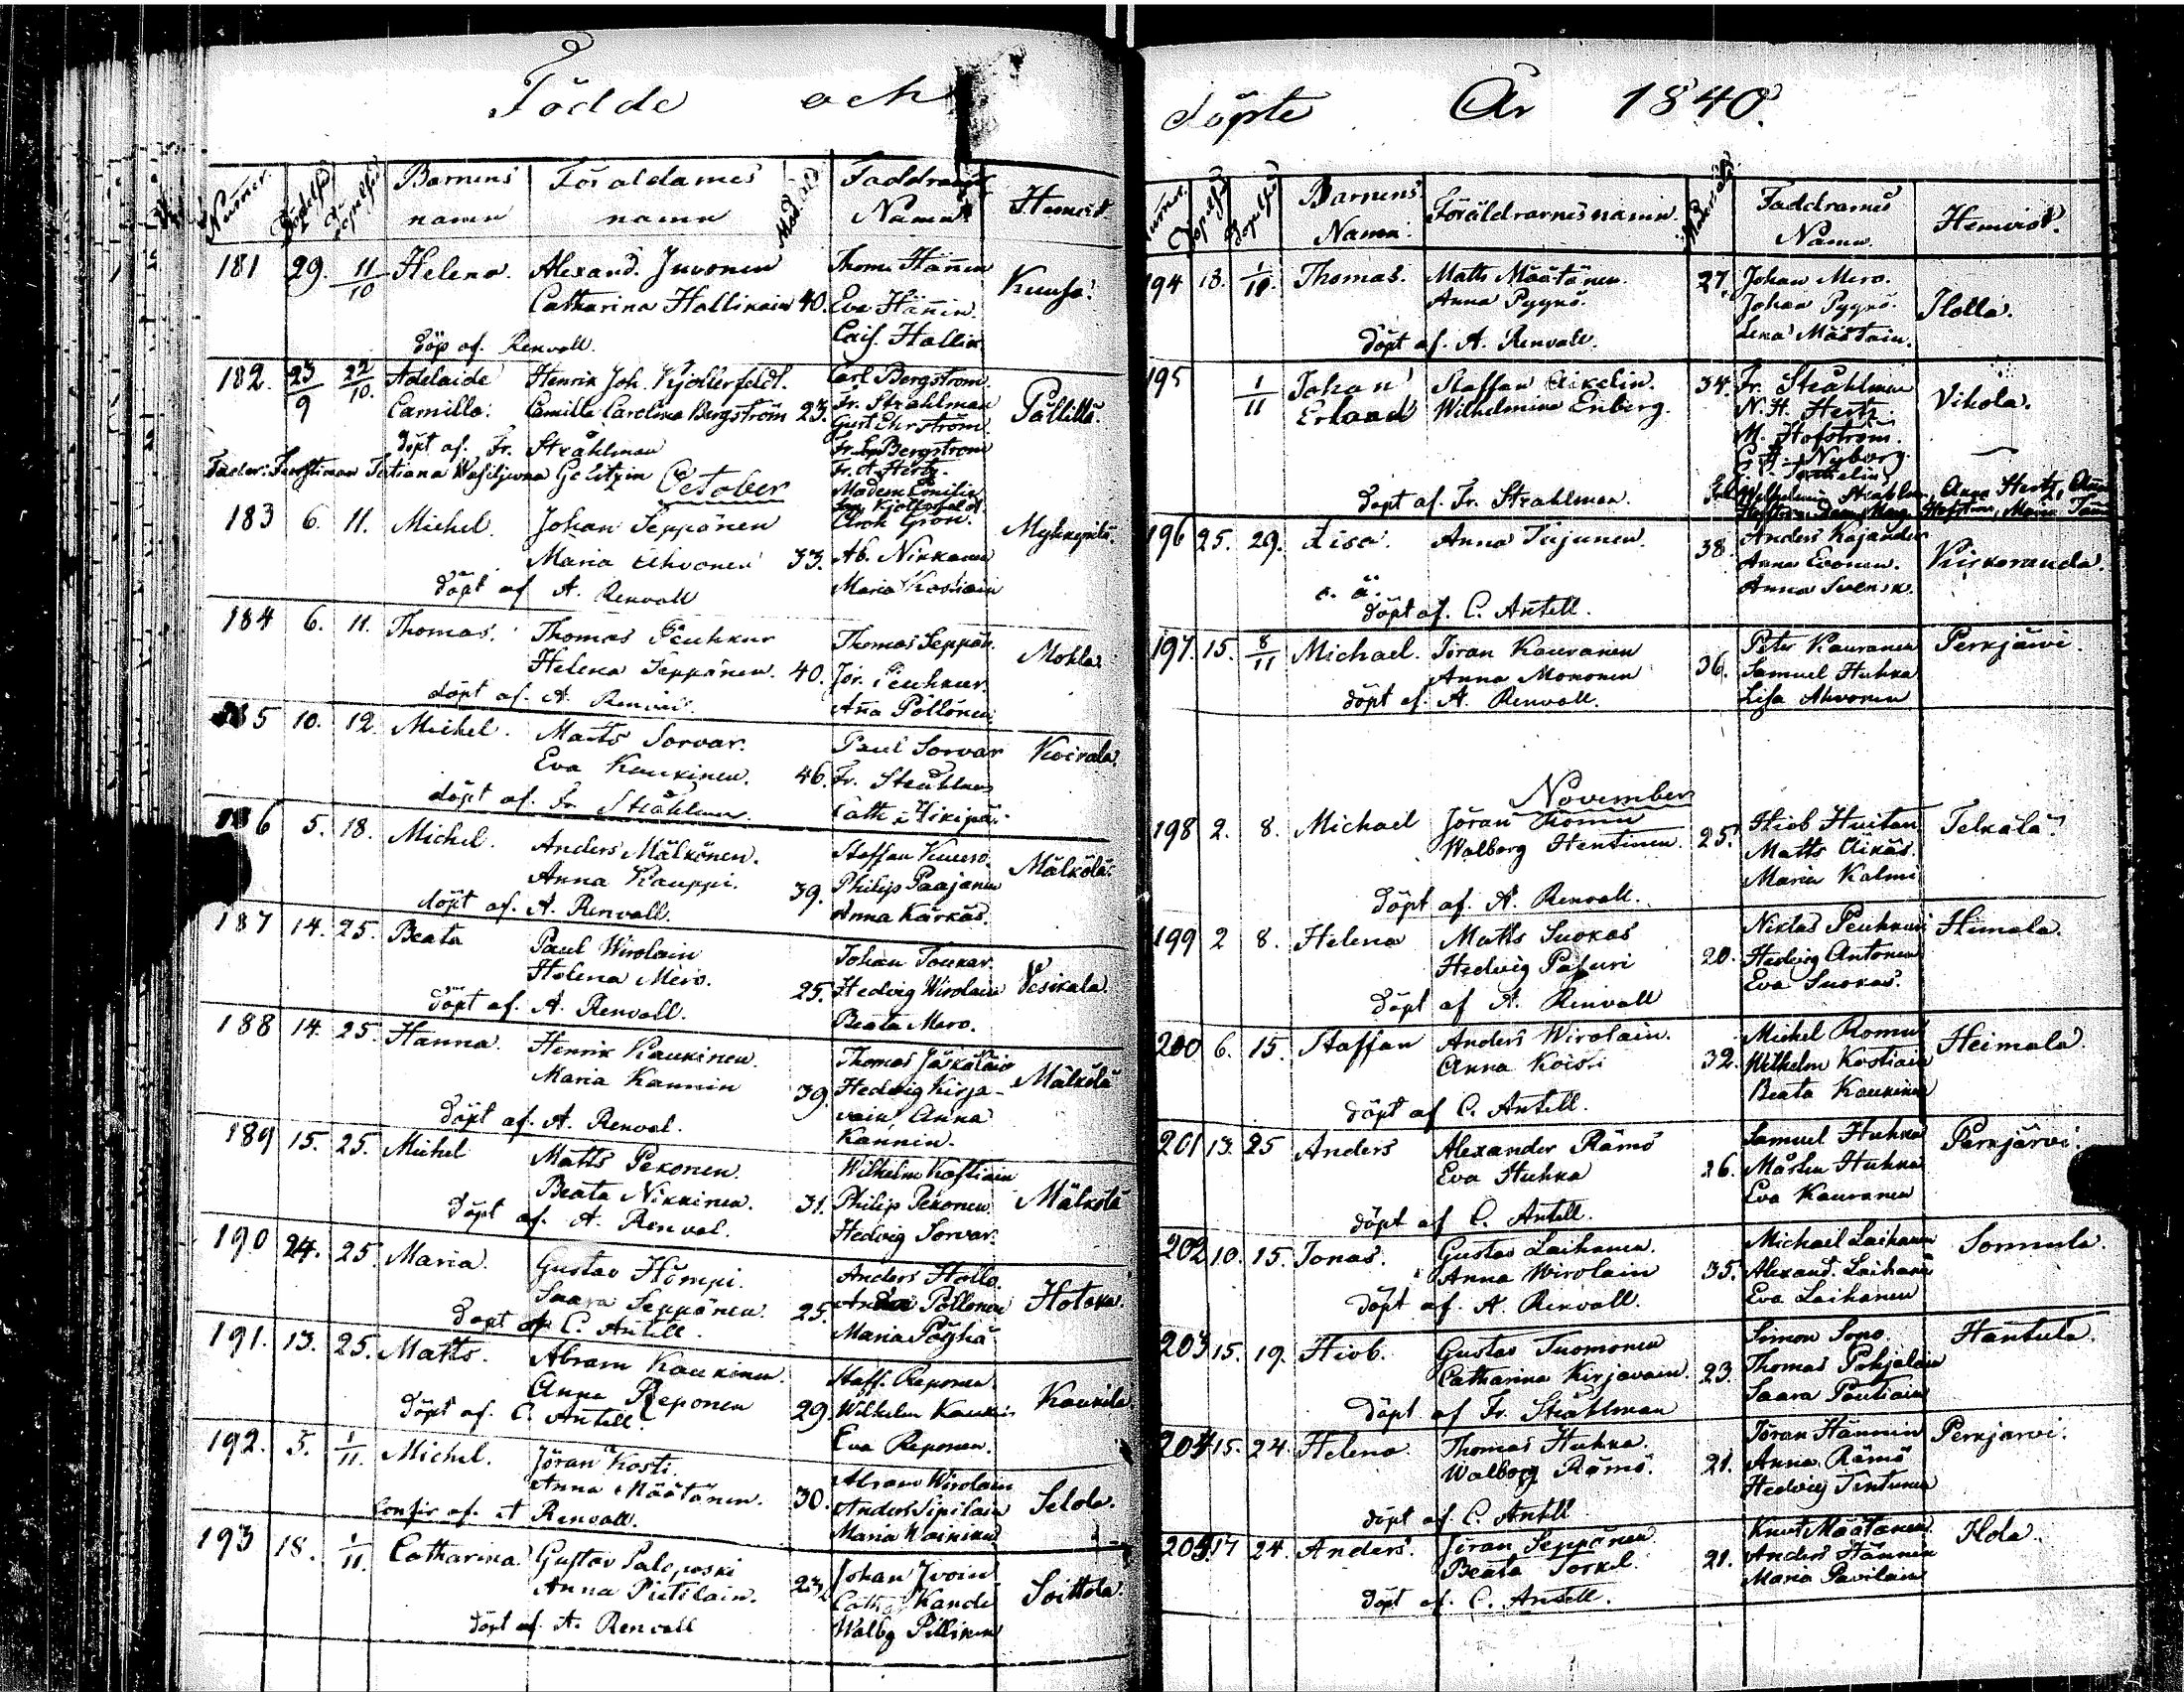 Födde och
Numer. Födelsed. Döpelsed. Barnens namn Föräldarnes namn Mod. åld. Faddrarnes Namn Hemvist.
181 29. 11/10 Helena. Alexand. Juvonen Thom. Hänin Kuusa.
Catharina Hallikain 40. Eva Hänin.
döp af. Renvall. Cais. Hallik
182. 23/9 22/10. Adelaide Henrik Joh. Kjöllerfeldt. Carl Bergström. Pällilä.
Camilla. Camilla Carolina Bergström 23. Fr. Strahlman
Gust Ehrström.
döpt af. Fr. Stråhlman Fr. Bergström
Fadder: Furstinnan Tatiana Wasiljewna Galitzin Fr. A. Hertz.
October Madem Emilie
Kjöllerfeldt.
183 6. 11. Michel. Johan Seppönen Grön. Mykrypilä.
Maria Ahvonen 33. Ab. Nikkanen
döpt af A. Renvall Maria Kostiain
184 6. 11. Thomas. Thomas Peuhkur Thomas Seppön. Mohla.
Helena Seppänen. 40. Jör. Peuhkur.
döpt af. A. Renvall. Anna Pöllönen
185 10. 12. Michel. Matts Sorvar. Paul Sorvar Koirala.
Eva Kaukinen. 46. Fr. Stråhlman
döpt af. Fr Stråhlman. Cath.
186 5. 18. Michel. Anders Mälkönen. Staffan Mälkölä.
Anna Kauppi. 39. Philip Paajanen
döpt af. A. Renvall. Anna Kärkäs.
187 14. 25. Beata Paul Wirolain Johan Toukar. Vesikala.
Helena Mero. 25. Hedvig Wirolain
döpt af. A. Renvall. Beata Mero.
188 14. 25. Hanna. Henrik Kaukinen. Thomas Jäskäläin Mälkölä
Maria Kannin 39. Hedvig Kirja-
döpt af. A. Renval. vain, Anna
Kannin.
189 15. 25. Michel Matts Pekonen. Wilhelm Kostiain Mälkölä
Beata Nikkinen. 31. Philip Pekonen
döpt af. A. Renval. Hedvig Sorvar.
190 24. 25. Maria. Gustav Hömpi. Anders Hallo. Hotaka.
Saara Seppänen. 25. Pöllönen
döpt af C. Antell. Maria Pöyhö
191. 13. 25. Matts. Abram Kaukinen Staff. Reponen. Kaukila
Anna Reponen 29. Wilhelm Kaukin
döpt af. C. Antell. Eva Reponen.
192. 5. 1/11. Michel. Jöran Kosti. Abram Wirolain Selola.
Anna Määtänen. 30. Anders Sipilain
confir af. A Renvall. Maria Wainikka
193 18. 1/11. Catharina Gustav Paloposki Johan Ivoin Soittola.
Anna Pietilain. 23. Cath. Kande
döpt af. A. Renvall Walbg Pillinen
döpte År 1840.
Numer. Döpelsed. Barnens Namn. Föräldrarnes namn. Moders ålder. Faddrarnes Namn. Hemvist.
194 18. 1/11. Thomas. Matts Määtänen. 27. Johan Mero. Ilola.
Anna Pyynö. Johan Pyynö.
döpt af. A. Renvall. Lena Määtäin.
195 1/11 Johan Staffan Aikelin. 34. Fr. Stråhlman Vikola.
Erland Wilhelmina Enberg. N. H. Hertz.
M. Hofström.
Nyborg.
döpt af. Fr. Strahlman. Wilhelmina Strahlm, Anna Hertz,
196 25. 29. Lisa. Anna Tujunen. 38. Anders Kajander Kirkoranda.
o. ä. Anna Evonen.
döpt af. C. Antell. Anna Svensk.
197. 15. 8/11 Michael. Jöran Kauranen Peter Kauranen Perkjärvi.
Anna Mononen 36. Samuel Huhka
döpt af. A. Renvall. Lisa Ahvonen
November
198 2. 8. Michael Jöran Tiomu Hiob Huitan Telkälä.
Walborg Hentinen. 25. Matts Äikäs.
döpt af. A. Renvall. Maria Kalmi
199 2 8. Helena Matts Suokas Niklas Peuhkuri Himala.
Hedvig Pasuri 20. Hedvig Antonen
döpt af A. Renvall Eva Suokas.
200 6. 15. Staffan Anders Wirolain. Michel Romu Heimala.
Anna Koisti 32. Wilhelm Kostiain
döpt af C. Antell. Beata Kaukinen
201 13. 25 Anders Alexander Rämö Samuel Huhka Perkjärvi.
Eva Huhka 26. Mårten Huhka
döpt af C. Antell. Eva Kauranen
202 10. 15. Jonas. Gustav Laihanen. Michael Laihanen Sormula.
Anna Wirolain 35. Alexand. Laihanen
döpt af. A. Renvall. Eva Laihanen
203 15. 19. Hiob. Gustav Tuomonen Simon Sopo. Hantula.
Catharina Kirjavain. 23. Thomas Pohjolain
döpt af Fr. Stråhlman Saara Poutiain
204 15. 24. Helena Thomas Huhka. Jöran Hännin Perkjärvi.
Walborg Rämö. 21. Anna Rämö
döpt af. C. Antell Hedvig Tintunen
205 17 24. Anders. Jöran Seppönen. Knut Määtänen. Ilola.
Beata Torkel. 21. Anders Hännin
döpt af. C. Antell. Maria Pavilain